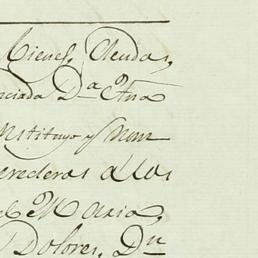 Bienes, Deudas,
nciada D.a Ana
nstituyo y nom
erederas a los
de Maria,
Dolores, Dn